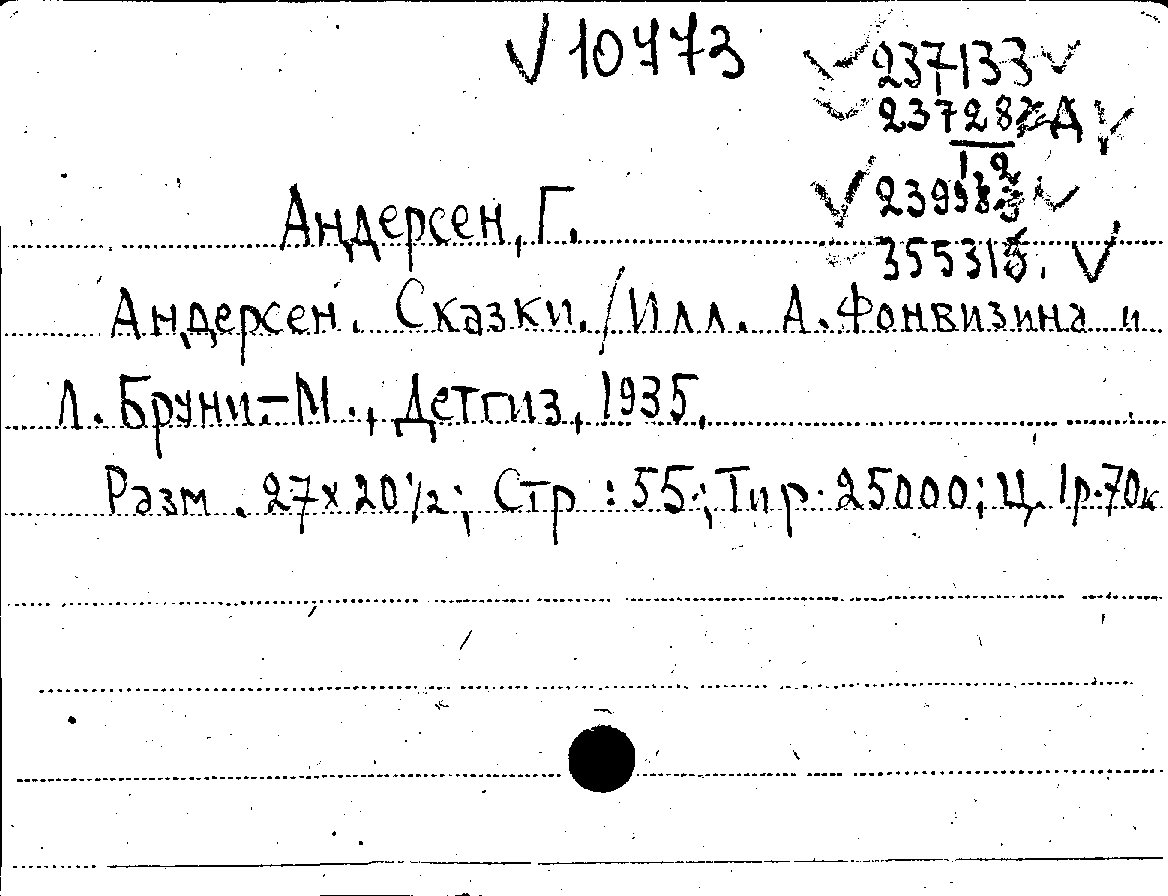 √ 10473
√ 237133 √
√ 237287 Д √
1,2
√ 239983 √
355315. √
Андерсен, Г.
Андерсен. Сказки. / Илл. А. Фонвизина и
Л. Бруни. – М., Детгиз, 1935.
Разм. 27х20½; Стр: 55; Тир. 25000; Ц. 1р.70к